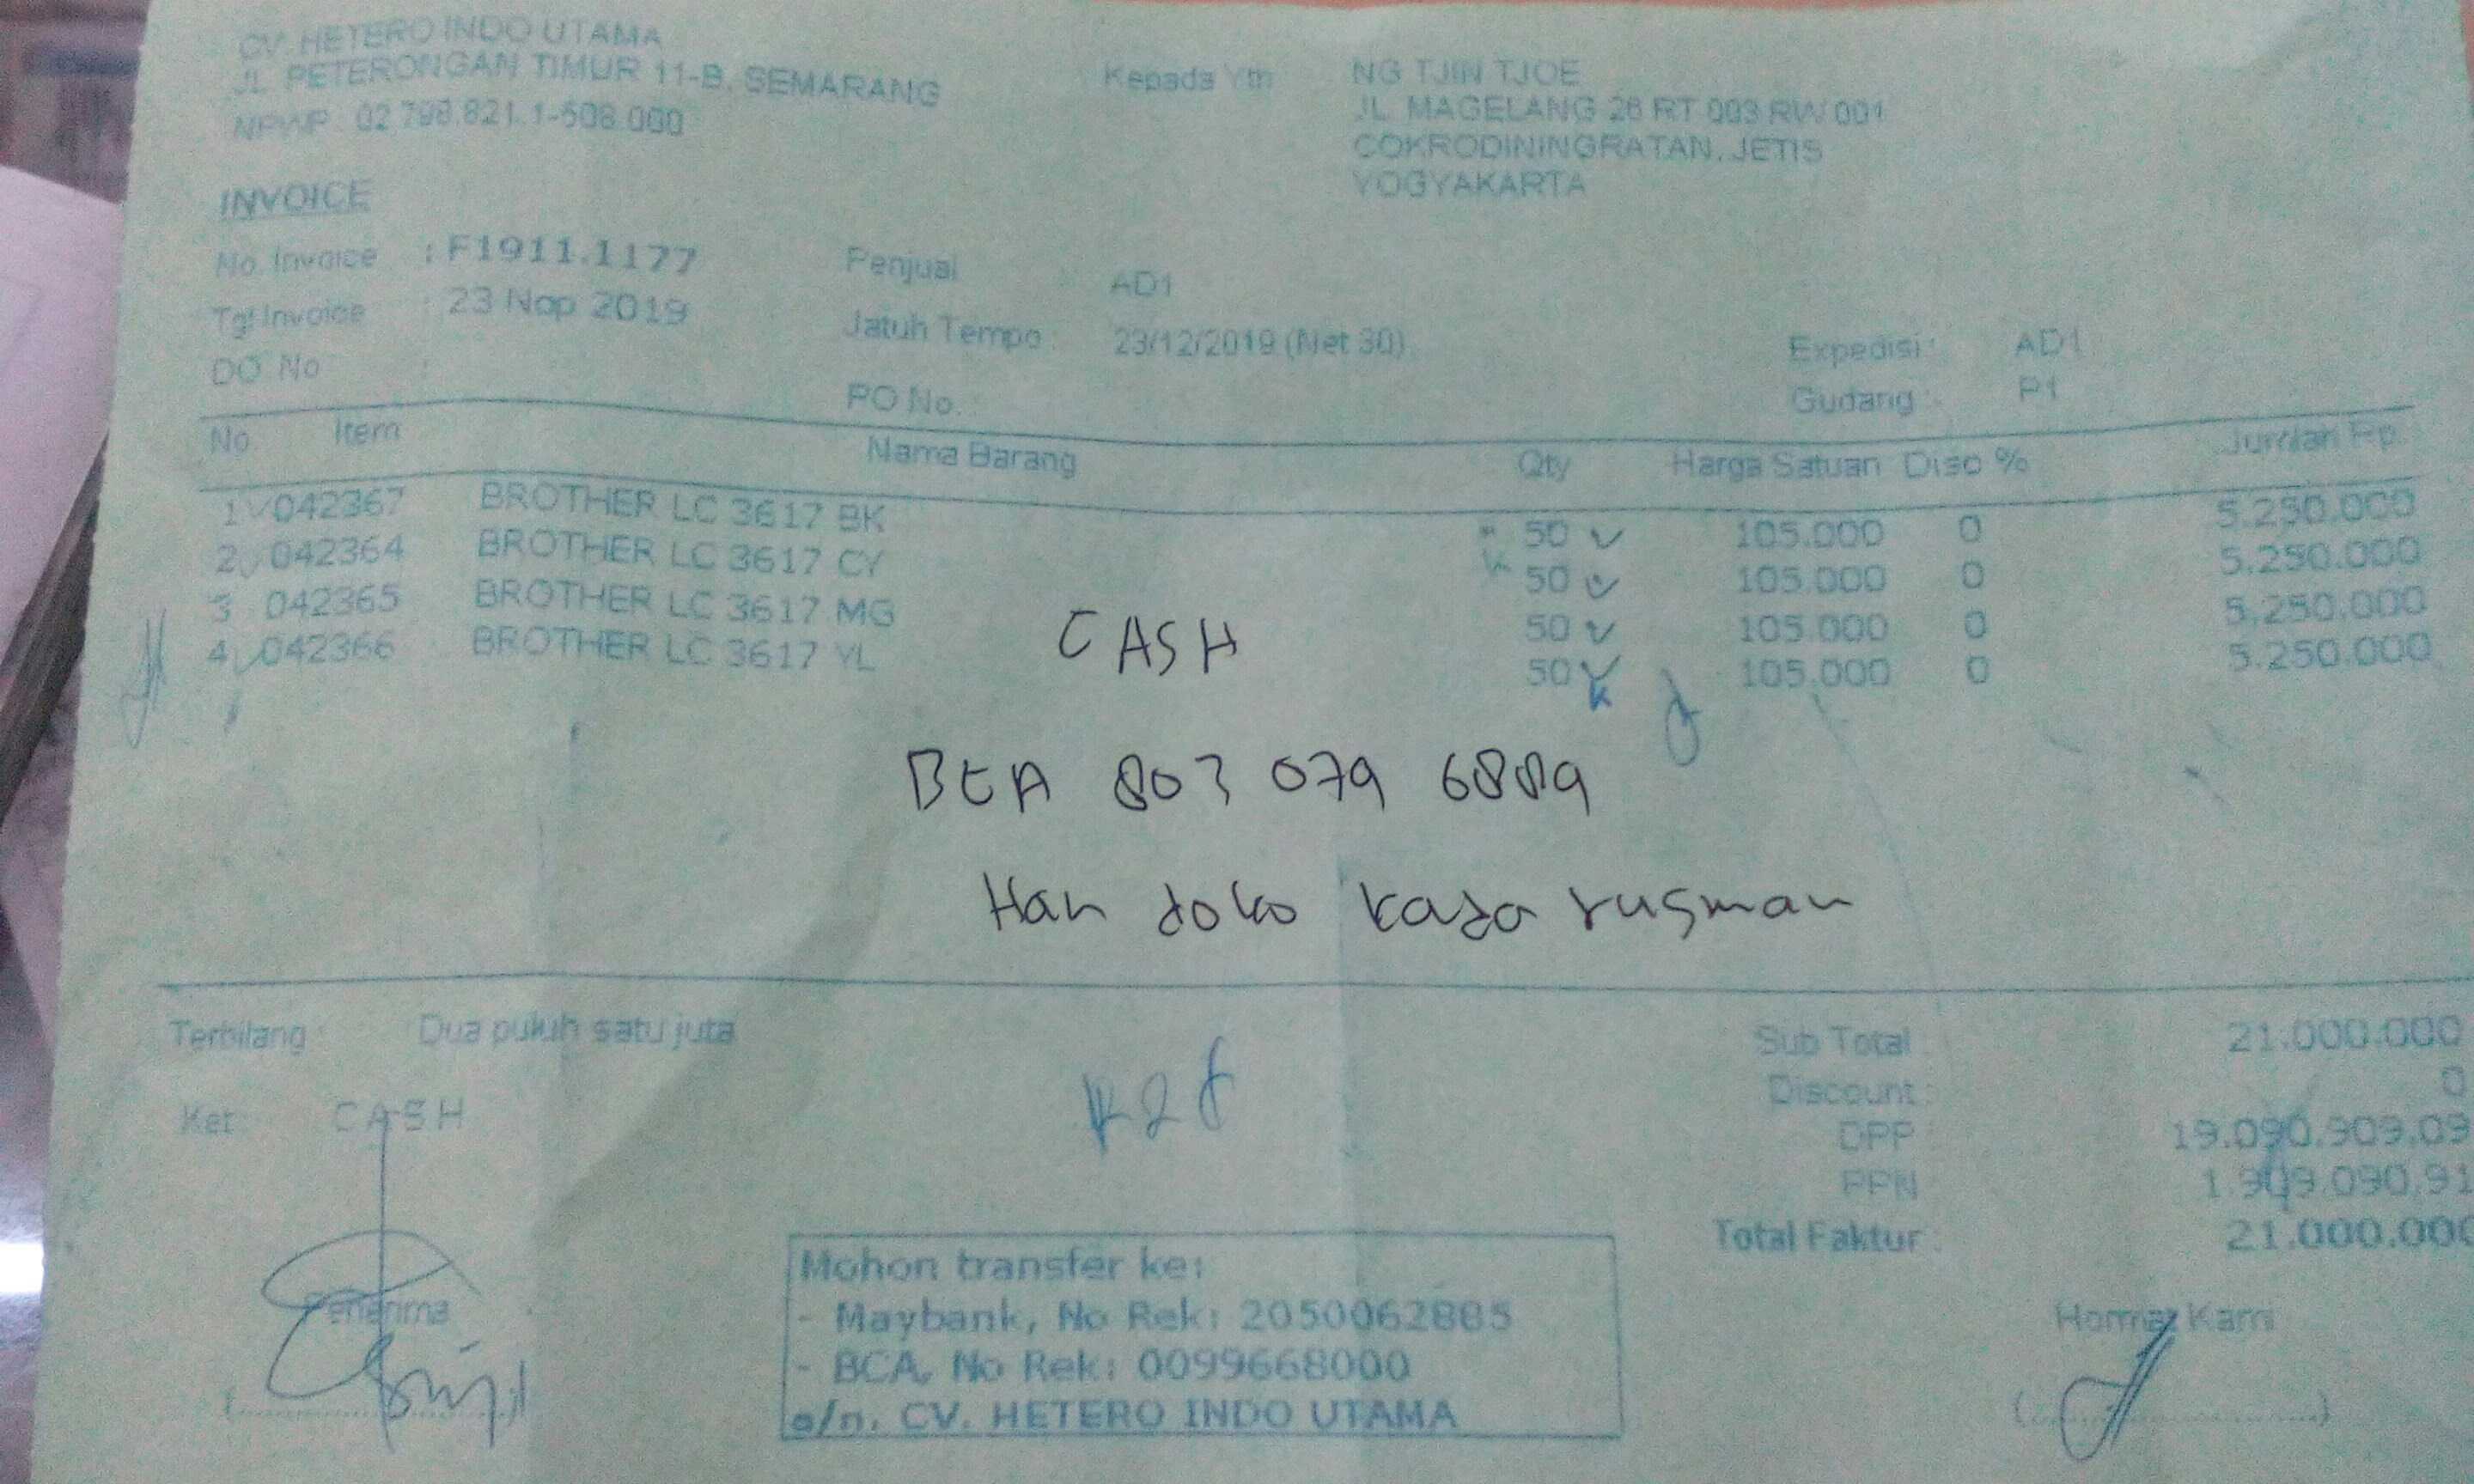 CV. HETERO INDO UTAMA
JL. PETERONGAN TIMUR 11-B, SEMARANG
NPWP 02.798.821.1-508.000
Kepada Yth NG TJIN TJOE
JL. MAGELANG 26 RT 003 RW 001
COKRODININGRATAN, JETIS
YOGYAKARTA
INVOICE
No. Invoice : F1911.1177 Penjual AD1
Tgl Invoice : 23 Nop 2019 Jatuh Tempo : 23/12/2019 (Net 30) Expedisi : AD1
DO No : PO No. : Gudang : P1
No. Item Nama Barang Qty Harga Satuan Disc % Jumlah Rp.
1 042367 BROTHER LC 3617 BK 50 105.000 0 5.250.000
2 042364 BROTHER LC 3617 CY 50 105.000 0 5.250.000
3 042365 BROTHER LC 3617 MG 50 105.000 0 5.250.000
4 042366 BROTHER LC 3617 YL 50 105.000 0 5.250.000
CASH
BCA 803 079 6889
Han doko
Terbilang : Dua puluh satu juta
Sub Total : 21.000.000
Ket : CASH
Discount : 0
DPP 19.090.909,09
PPN 1.909.090,91
Total Faktur : 21.000.000
Mohon transfer ke:
- Maybank, No Rek: 2050062885
- BCA, No Rek: 0099668000
a/n. CV. HETERO INDO UTAMA
Penerima
Hormat Kami